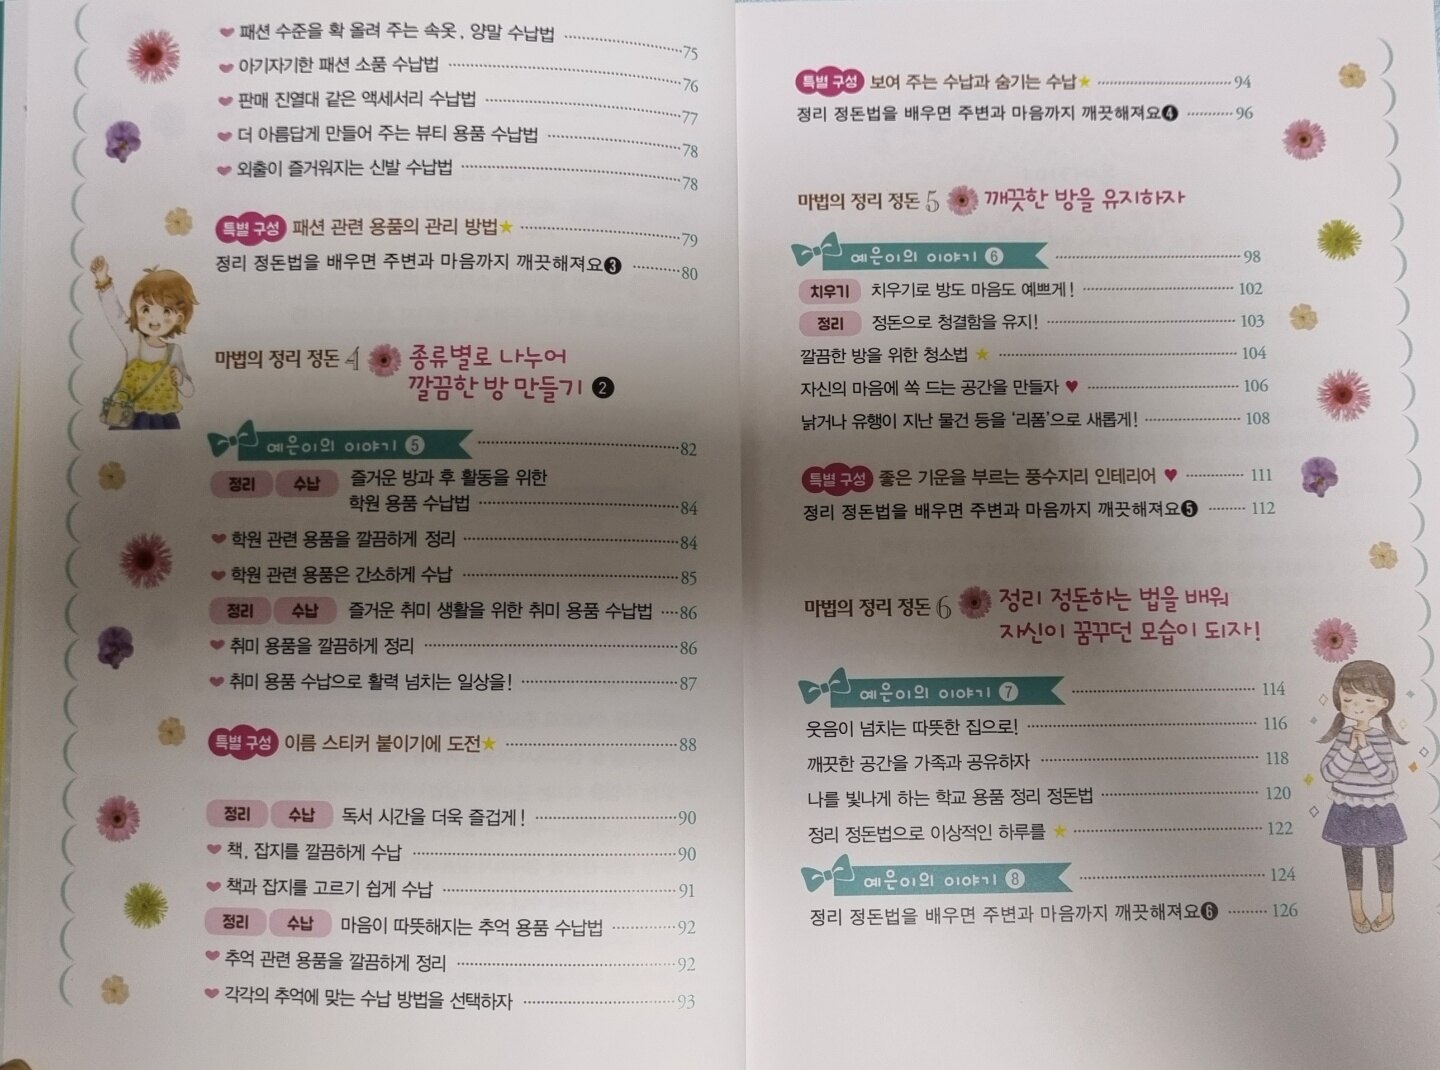 패션 수준을 확 올려 주는 속옷, 양말 수납법 75
아기자기한 패션 소품 수납법 76
판매 진열대 같은 액세서리 수납법 77
더 아름답게 만들어 주는 뷰티 용품 수납법 78
외출이 즐거워지는 신발 수납법 78
특별 구성 패션 관련 용품의 관리 방법 79
정리 정돈법을 배우면 주변과 마음까지 깨끗해져요❸ 80
마법의 정리 정돈 4 종류별로 나누어
깔끔한 방 만들기 ❷
예은이의 이야기 ⑤ 82
정리 수납 즐거운 방과 후 활동을 위한
학원 용품 수납법 84
학원 관련 용품을 깔끔하게 정리 84
학원 관련 용품은 간소하게 수납 85
정리 수납 즐거운 취미 생활을 위한 취미 용품 수납법 86
취미 용품을 깔끔하게 정리 86
취미 용품 수납으로 활력 넘치는 일상을! 87
특별 구성 이름 스티커 붙이기에 도전 88
정리 수납 독서 시간을 더욱 즐겁게! 90
책, 잡지를 깔끔하게 수납 90
책과 잡지를 고르기 쉽게 수납 91
정리 수납 마음이 따뜻해지는 추억 용품 수납법 92
추억 관련 용품을 깔끔하게 정리 92
각각의 추억에 맞는 수납 방법을 선택하자 93
특별 구성 보여 주는 수납과 숨기는 수납 94
정리 정돈법을 배우면 주변과 마음까지 깨끗해져요❹ 96
마법의 정리 정돈 5 깨끗한 방을 유지하자
예은이의 이야기 ⑥ 98
치우기 치우기로 방도 마음도 예쁘게! 102
정리 정돈으로 청결함을 유지! 103
깔끔한 방을 위한 청소법 104
자신의 마음에 쏙 드는 공간을 만들자 106
낡거나 유행이 지난 물건 등을 ‘리폼’으로 새롭게! 108
특별 구성 좋은 기운을 부르는 풍수지리 인테리어 111
정리 정돈법을 배우면 주변과 마음까지 깨끗해져요❺ 112
마법의 정리 정돈 6 정리 정돈하는 법을 배워
자신이 꿈꾸던 모습이 되자!
예은이의 이야기 ⑦ 114
웃음이 넘치는 따뜻한 집으로! 116
깨끗한 공간을 가족과 공유하자 118
나를 빛나게 하는 학교 용품 정리 정돈법 120
정리 정돈법으로 이상적인 하루를 122
예은이의 이야기 ⑧ 124
정리 정돈법을 배우면 주변과 마음까지 깨끗해져요❻ 126